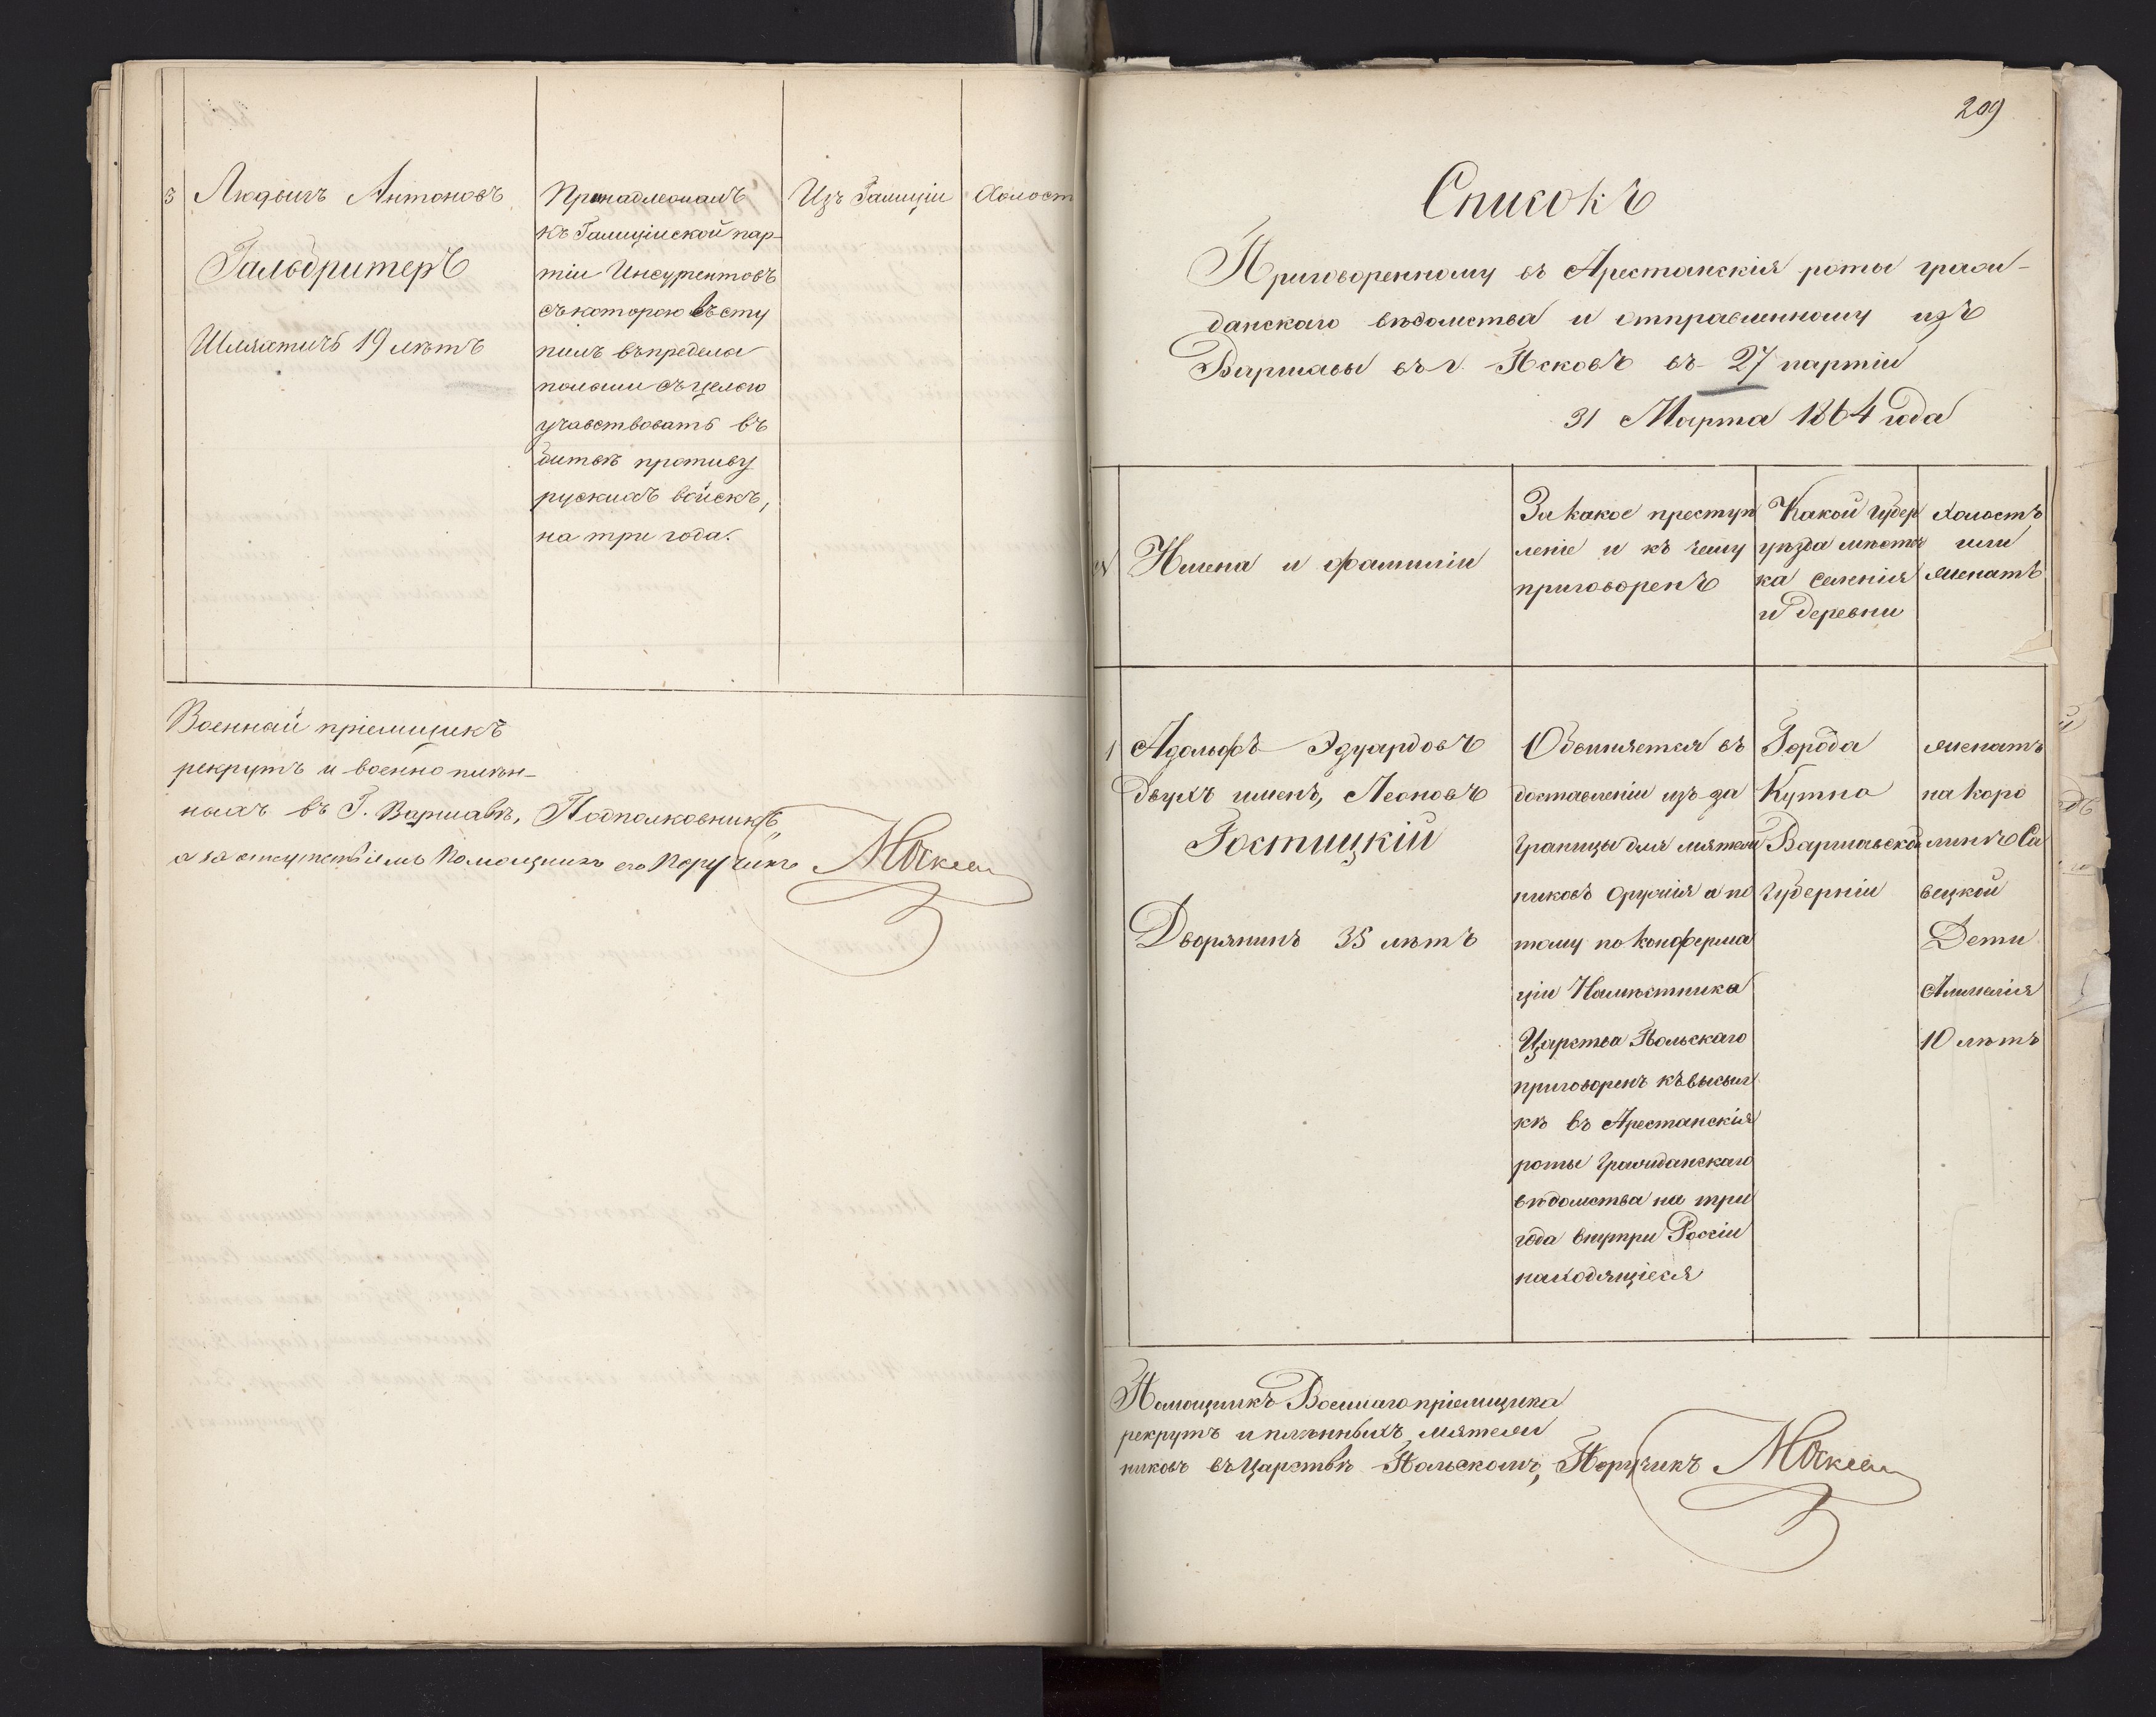 3 Людвигъ Антоновъ
Гальбритеръ
Шляхтичъ 19 лѣтъ
Принадлежалъ
къ Галиційской пар-
тіи Инсургентовъ
съ которою въ сту
пилъ въ предела
польши съ целью
учавствовать въ
битвѣ противу
рускихъ войскъ,
на три года.
Изъ Галиціи
Холост
Военный пріемщикъ
рекрутъ и военно плѣн-
ныхъ въ Г. Варшавѣ, Подполковникъ,
а за отсутствіемъ Помощникъ его Поручикъ
209
Списокъ
Приговоренному въ Арестанскія роты граж-
данскаго вѣдомства и отправленному изъ
Варшавы въ г. Псковъ въ 27 партіи
31 Марта 1864 года
№ Имена и фамиліи
За какое преступ
леніе и къ чему
приговоренъ
Какой губер
уѣзда мѣстеч
ка селенія
и деревни
холостъ
или
женатъ
1 Адольфъ Эдуардовъ
двухъ именъ, Леоновъ
Гостицкій
Дворянинъ 35 лѣтъ
Обвиняется въ
доставленіи изъ за
границы для мятеж
никовъ оружія а по
тому по конфирма
ціи Намѣстника
Царства Польскаго
приговоренъ къ высыл
кѣ въ Арестанскія
роты Гражданскаго
вѣдомства на три
года внутри Россіи
находящіеся
Города
Кутно
Варшавской
Губерніи
женатъ
на Каро
линѣ Са
вецкой
Дети
10 лѣтъ
Помощникъ Военнаго пріемщика
рекрутъ и плѣнныхъ мятеж
никовъ въ Царствѣ Польскомъ, Поручикъ